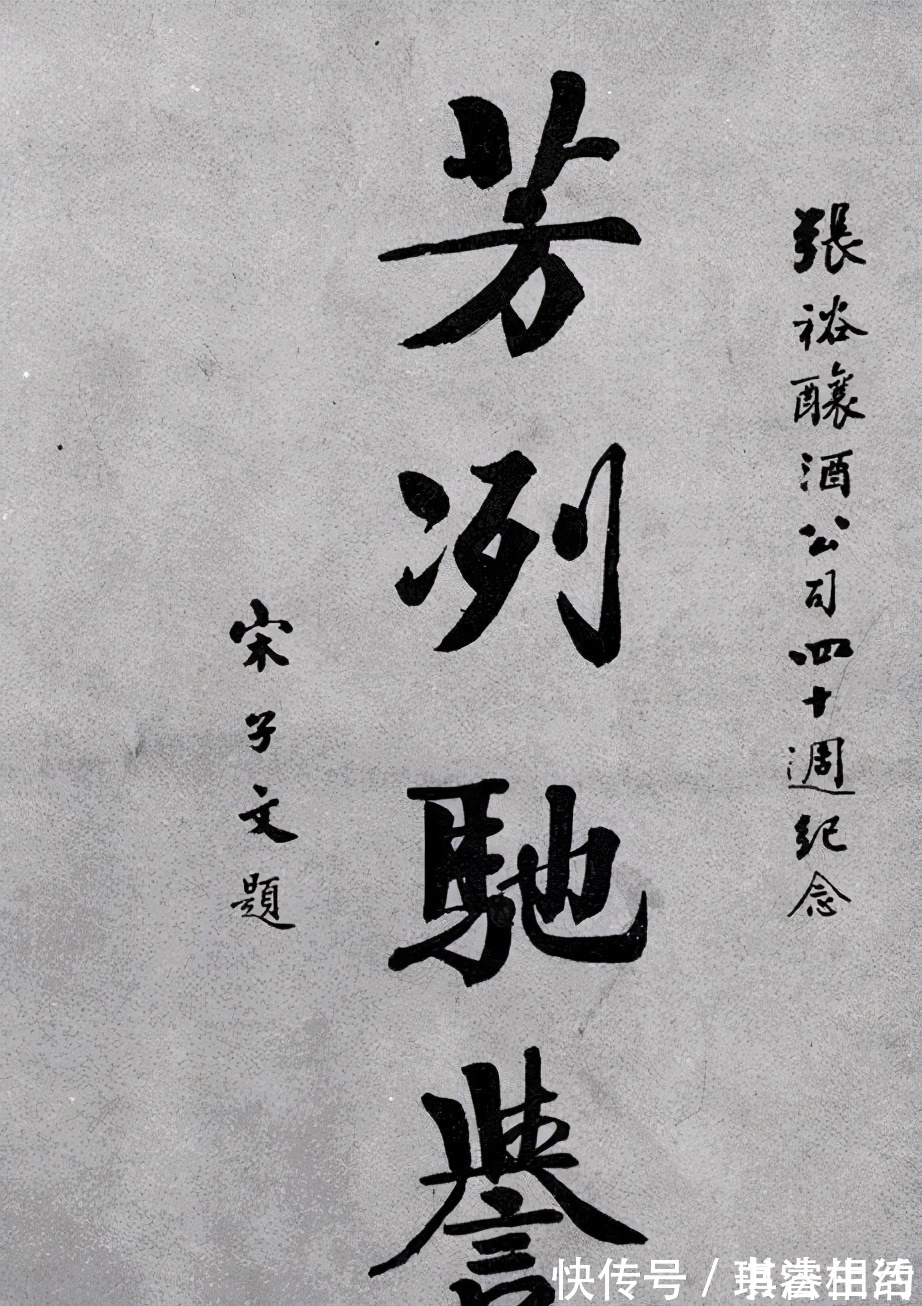 張裕釀酒公司四十週紀念
芳冽馳譽
宋子文題
快传号 /